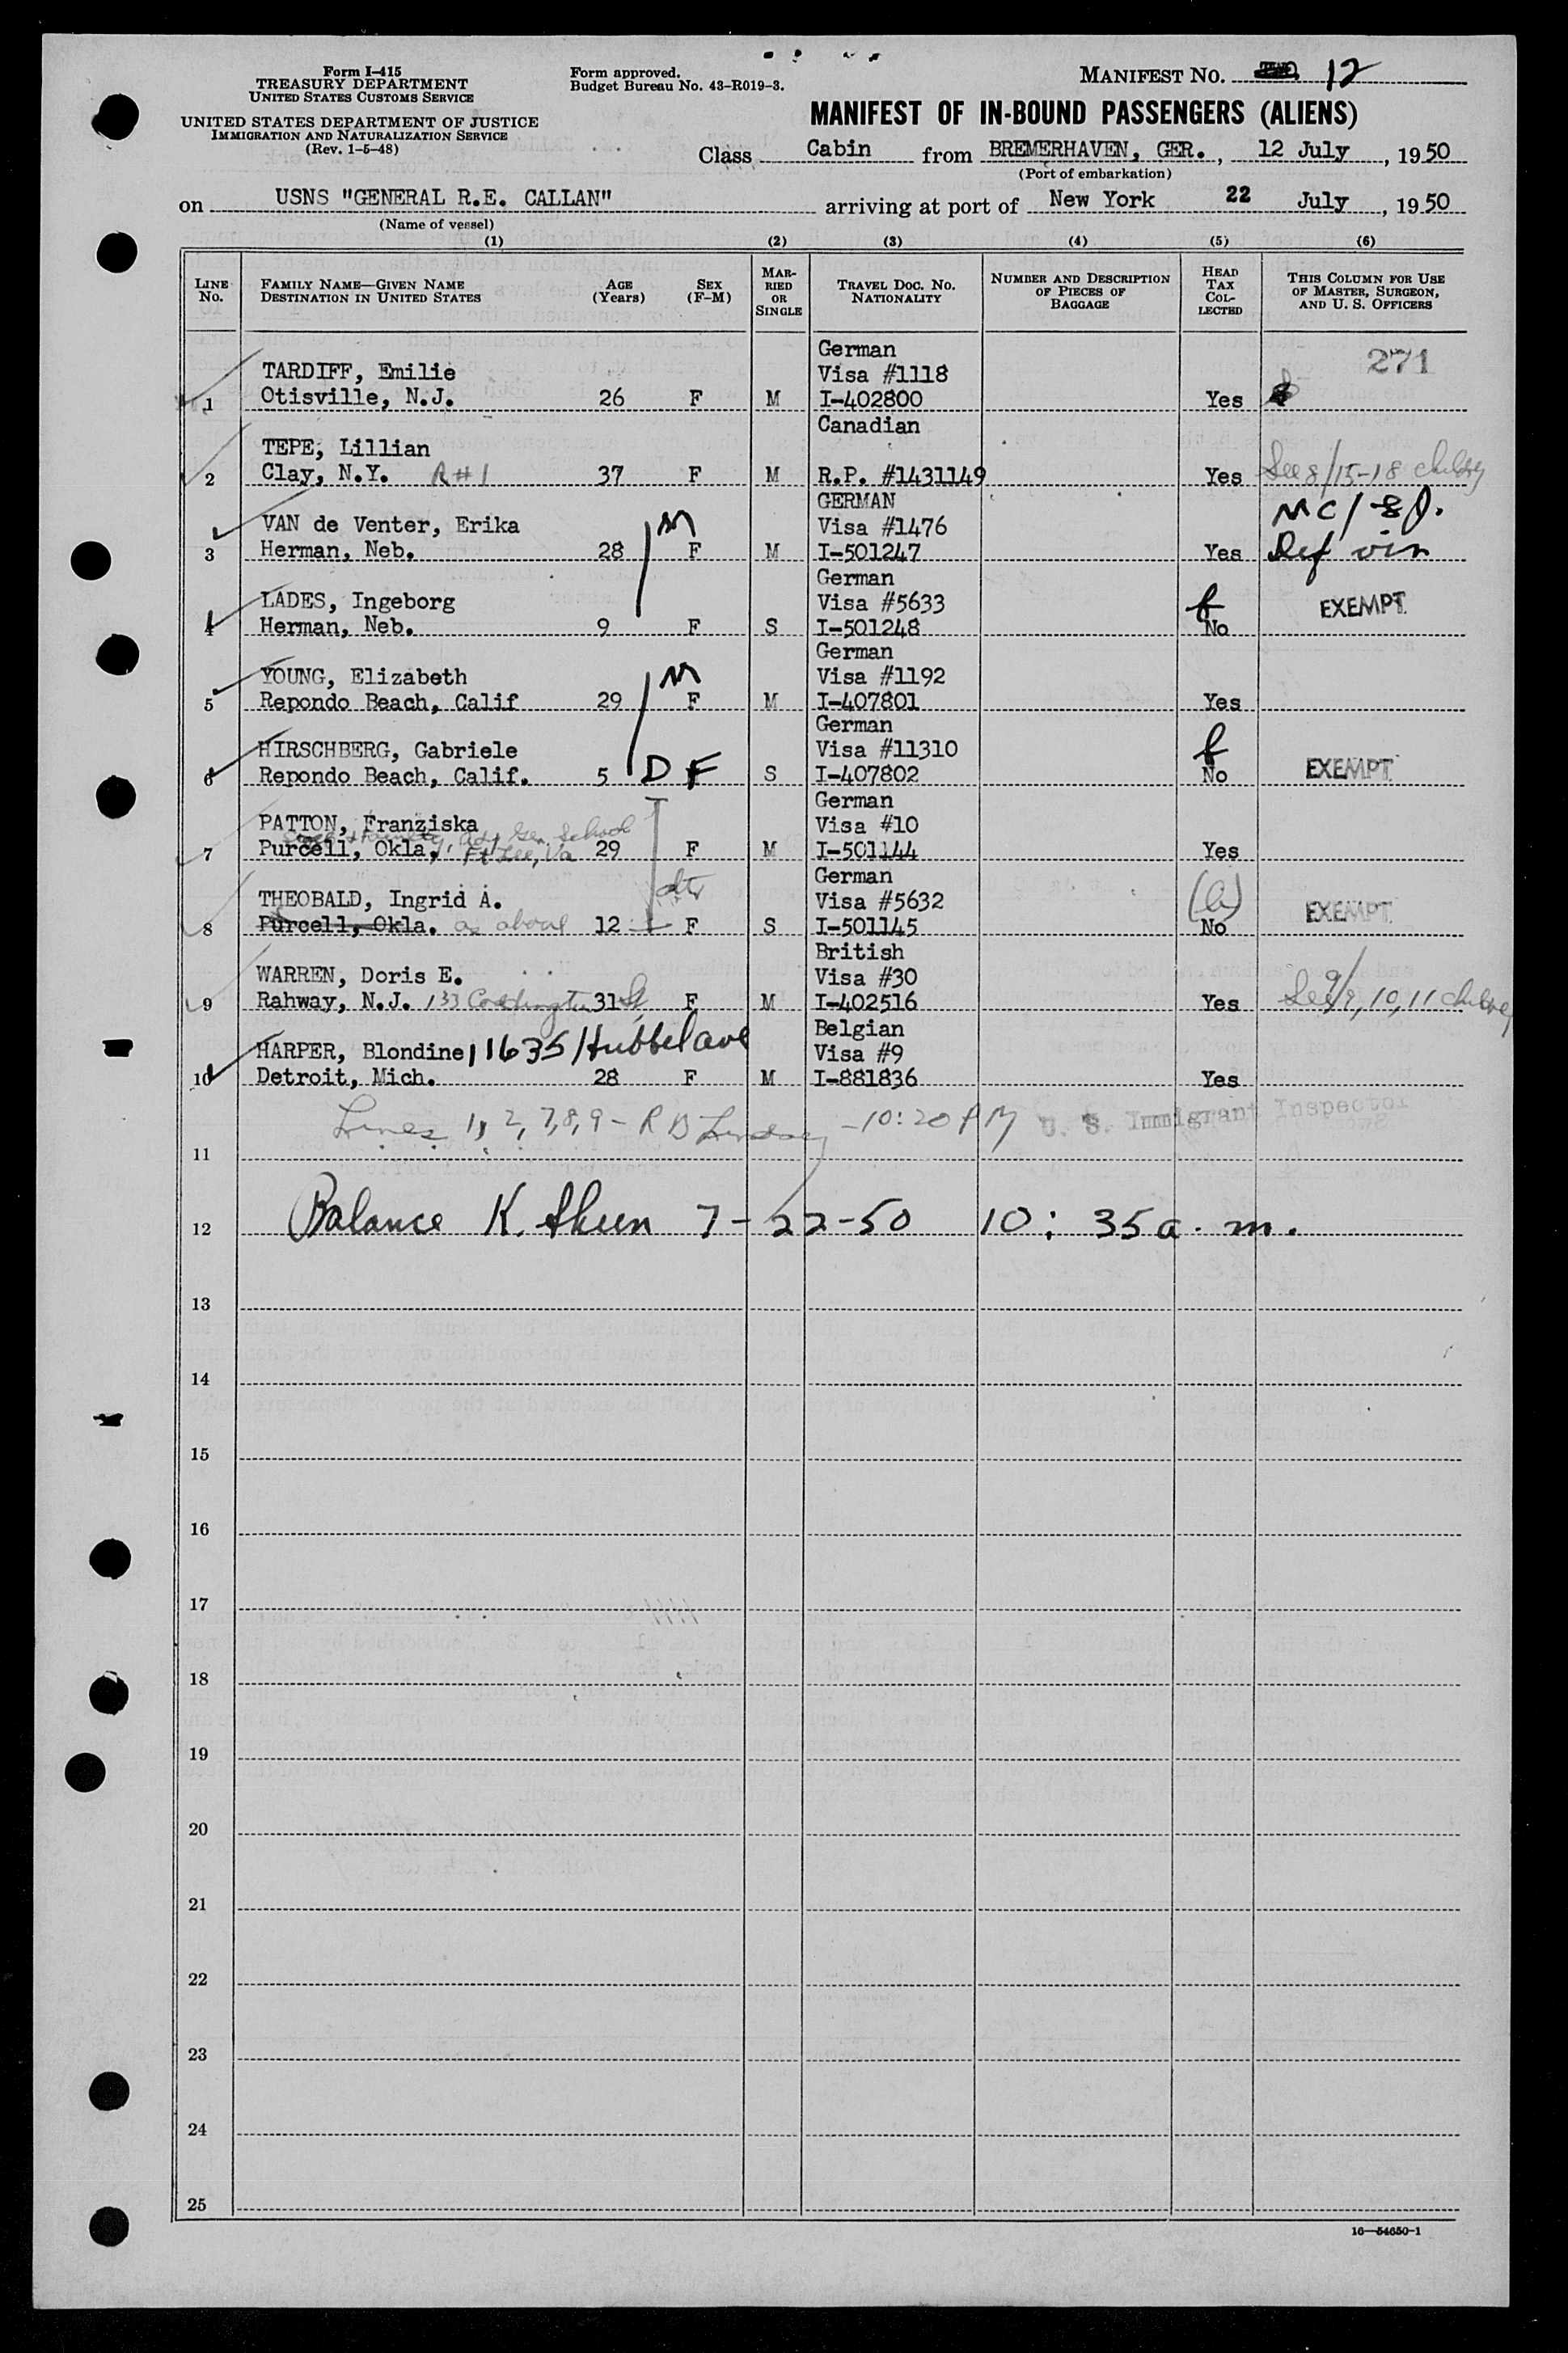 Form I-415
TREASURY DEPARTMENT
UNITED STATES CUSTOMS SERVICE
UNITED STATES DEPARTMENT OF JUSTICE
IMMIGRATION AND NATURALIZATION SERVICE
(Rev. 1-5-48)
Form approved.
Budget Bureau No. 43-R019-3.
MANIFEST NO. 12
MANIFEST OF IN-BOUND PASSENGERS (ALIENS)
Class Cabin from BREMERHAVEN, GER., 12 July, 1950
(Port of embarkation)
on USNS "GENERAL R.E. CALLAN" arriving at port of New York 22 July, 1950
(Name of vessel)
(1) (2) (3) (4) (5) (6)
LINE No. FAMILY NAME—GIVEN NAME DESTINATION IN UNITED STATES AGE (Years) SEX (F-M) MARRIED OR SINGLE TRAVEL DOC. NO. NATIONALITY NUMBER AND DESCRIPTION OF PIECES OF BAGGAGE HEAD TAX COLLECTED THIS COLUMN FOR USE OF MASTER, SURGEON, AND U. S. OFFICERS
German
TARDIFF, Emilie Visa #1118 271
1 Otisville, N.J. 26 F M I-402800 Yes
Canadian
TEPE, Lillian
2 Clay, N.Y. R#1 37 F M R.P. #1431149 Yes See 8/15-18 childrg
GERMAN MC/
VAN de Venter, Erika M Visa #1476
3 Herman, Neb. 28 F M I-501247 Yes Ref
German
LADES, Ingeborg Visa #5633 EXEMPT
4 Herman, Neb. 9 F S I-501248 No
German
YOUNG, Elizabeth M Visa #1192
5 Repondo Beach, Calif 29 F M I-407801 Yes
German
HIRSCHBERG, Gabriele Visa #11310 EXEMPT
6 Repondo Beach, Calif. 5 D F S I-407802 No
German
PATTON, Franziska Visa #10
Adj Gen School
7 Purcell, Okla. Ft Lee, Va 29 F M I-501144 Yes
German
THEOBALD, Ingrid A. dtr Visa #5632 EXEMPT
8 Purcell, Okla. as above 12 F S I-501145 No
British
WARREN, Doris E. Visa #30
9 Rahway, N.J. 133 Coddington St 31 F M I-402516 Yes See 9/9, 10, 11
Belgian
HARPER, Blondine 11635 Hubbel ave Visa #9
10 Detroit, Mich. 28 F M I-881836 Yes
Lines 1, 2, 7, 8, 9 - R B Lindsay - 10:20 AM U. S. Immigrant Inspector
11
12 Balance K. 7-22-50 10:35 a.m.
13
14
15
16
17
18
19
20
21
22
23
24
25
16—54650-1